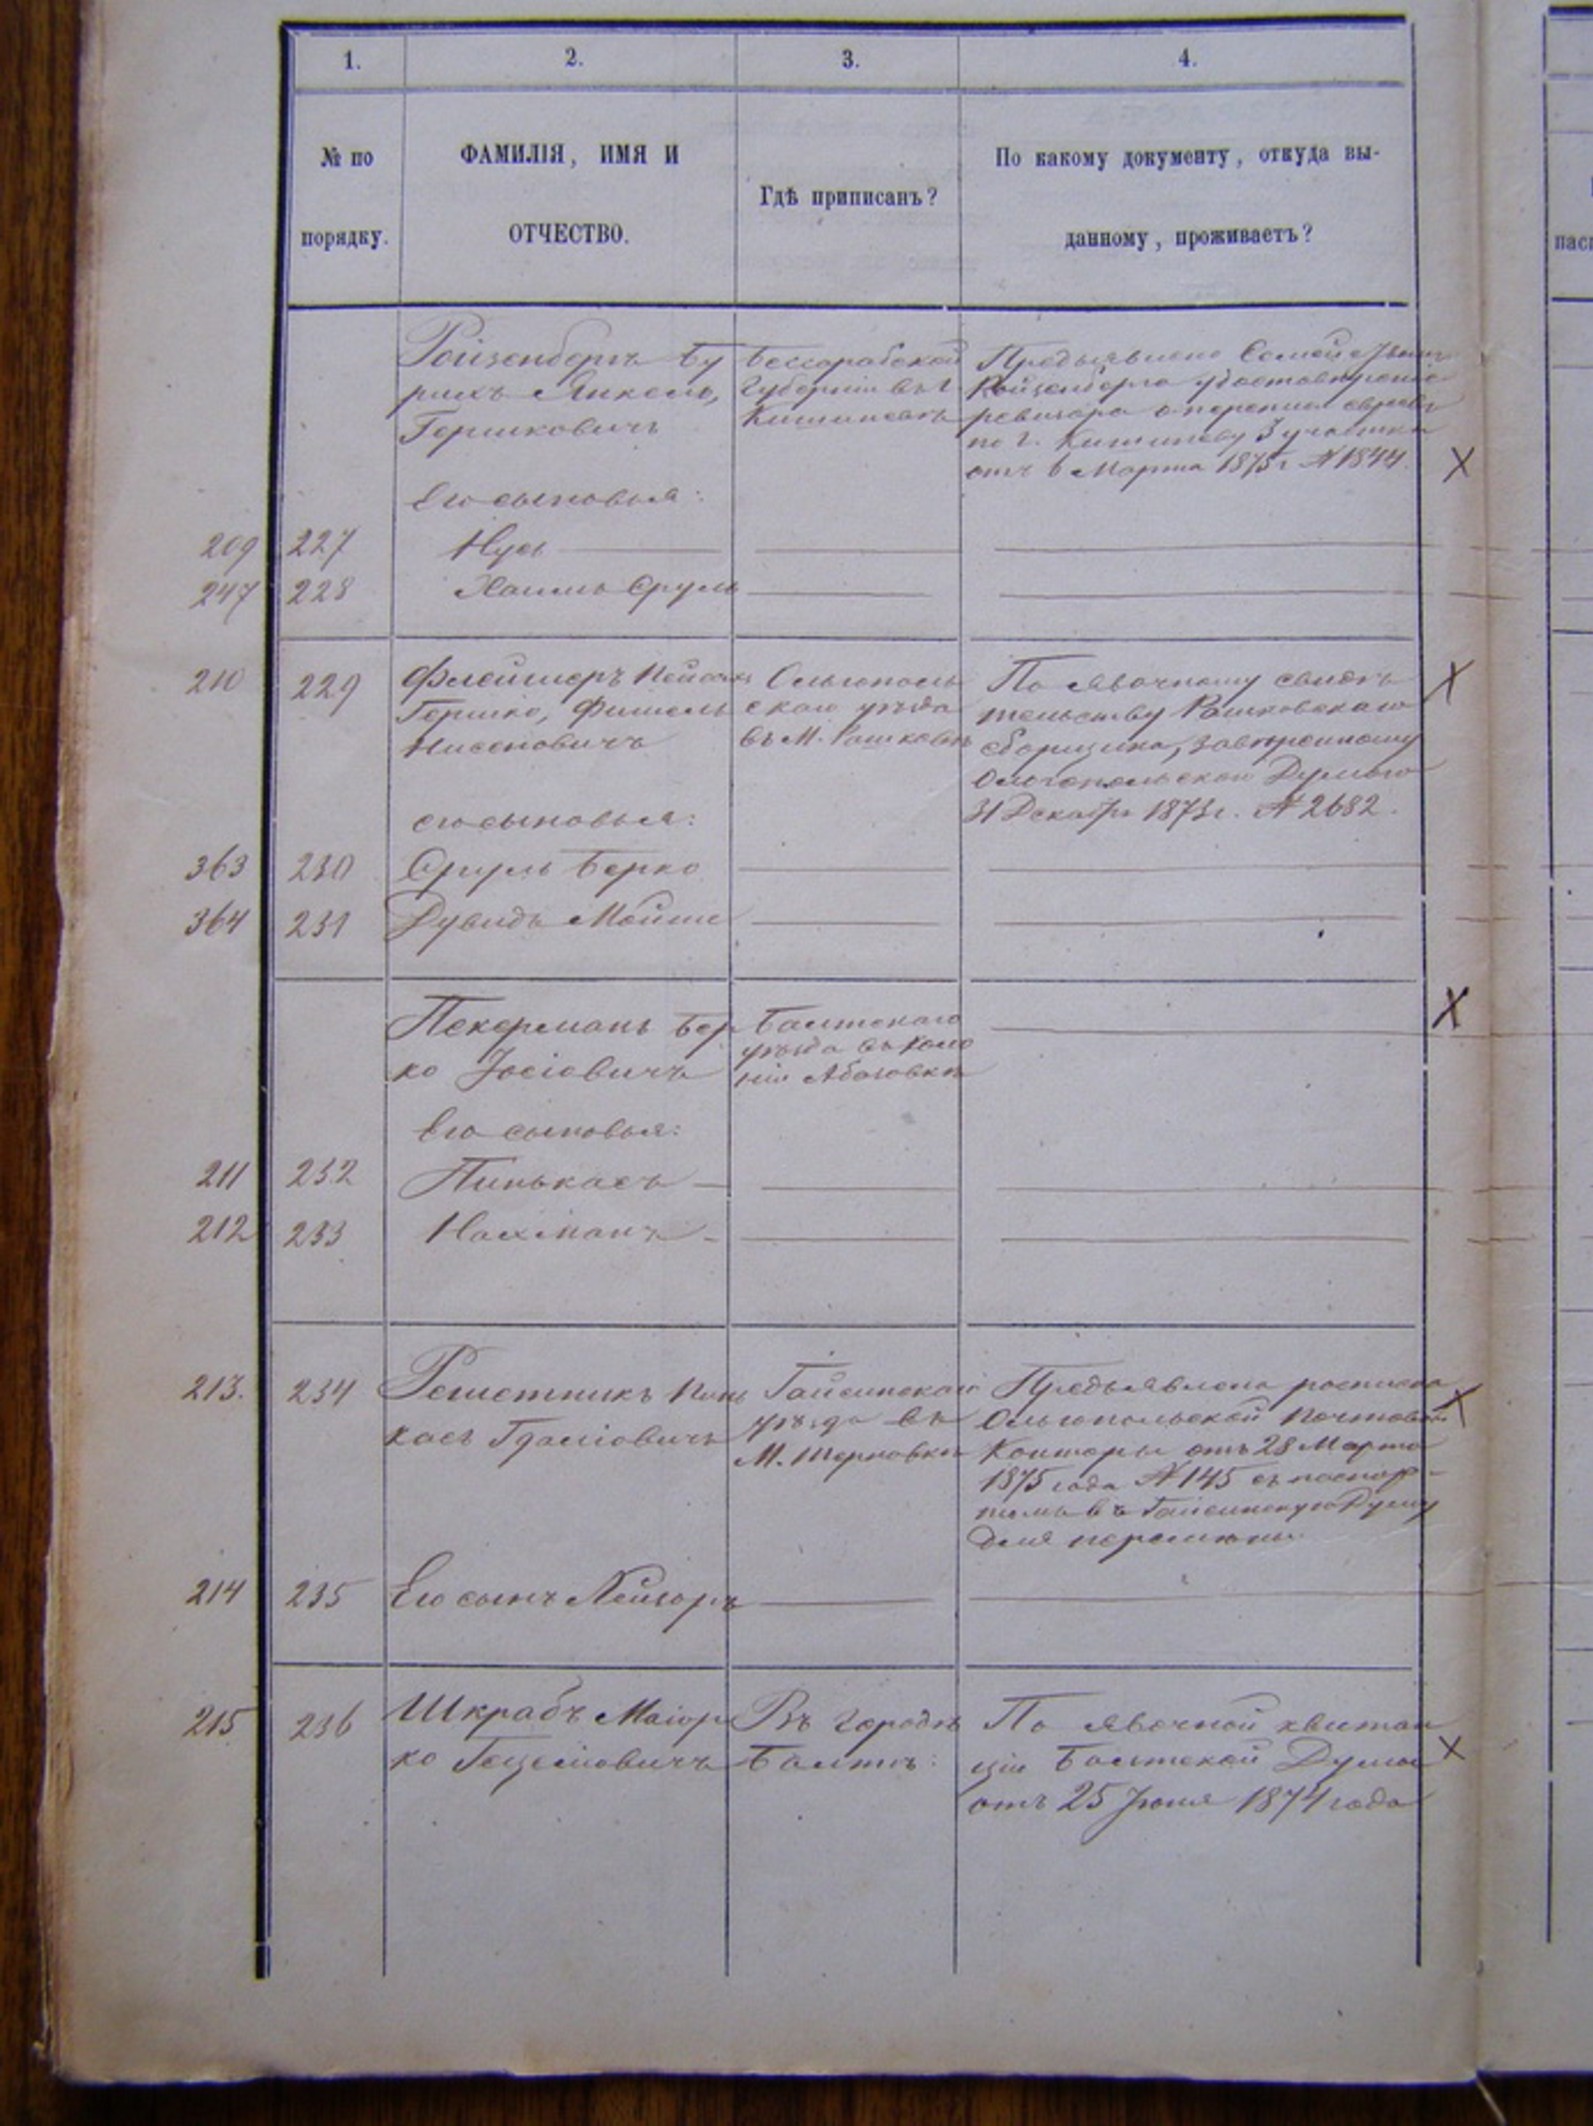 1. 2. 3. 4.
№ по
порядку.
ФАМИЛІЯ, ИМЯ И
ОТЧЕСТВО.
Гдѣ приписанъ?
По какому документу, откуда вы-
данному, проживаетъ?
пасп
Ройзенбергъ Бу
рихъ Янкель,
Гершковичъ
Бессарабской
Губерніи въ г.
Кишиневѣ
Предъявлено Семейством
Ройзенберга удостовѣреніе
ревизора о переписи евреевъ
по г. Кишиневу 3 участка
отъ 6 Марта 1875 г №1844.
Его сыновья:
209 227 Нусъ
247 228 Хаимъ Сруль
210 229 Флейшеръ
Гершко, Фишель
Нисеновичъ
Ольгополь
скаго уѣзда
въ М. Рашковѣ
По явочному свидѣ
тельству Рашковскаго
сборщика, завѣренному
Ольгопольскою Думою
31 Декабря 1873 г. №2682.
его сыновья:
363 230 Сруль Берко
364 231 Дувидъ Мойше
Пекерманъ Бер
ко Іосіовичъ
Балтскаго
уѣзда въ коло
ніи Абазовкѣ
Его сыновья:
211 232 Пинькасъ
212 233 Нахманъ
213. 234 Решетникъ Пинь
касъ Гдаліовичъ
Гайсинскаго
уѣзда въ
М. Терновкѣ
Предъявлена росписка
Ольгопольской Почтовой
Конторы отъ 28 Марта
1875 года №145 съ паспор-
томъ въ Гайсинскую Думу
для перемѣны.
214 235 Его сынъ Лейзоръ
215 236 Шкрабъ Маіор
ко Гецеліовичъ
Въ городѣ
Балтѣ:
По явочной квитан
ціи Балтской Думы
отъ 25 Іюня 1874 года